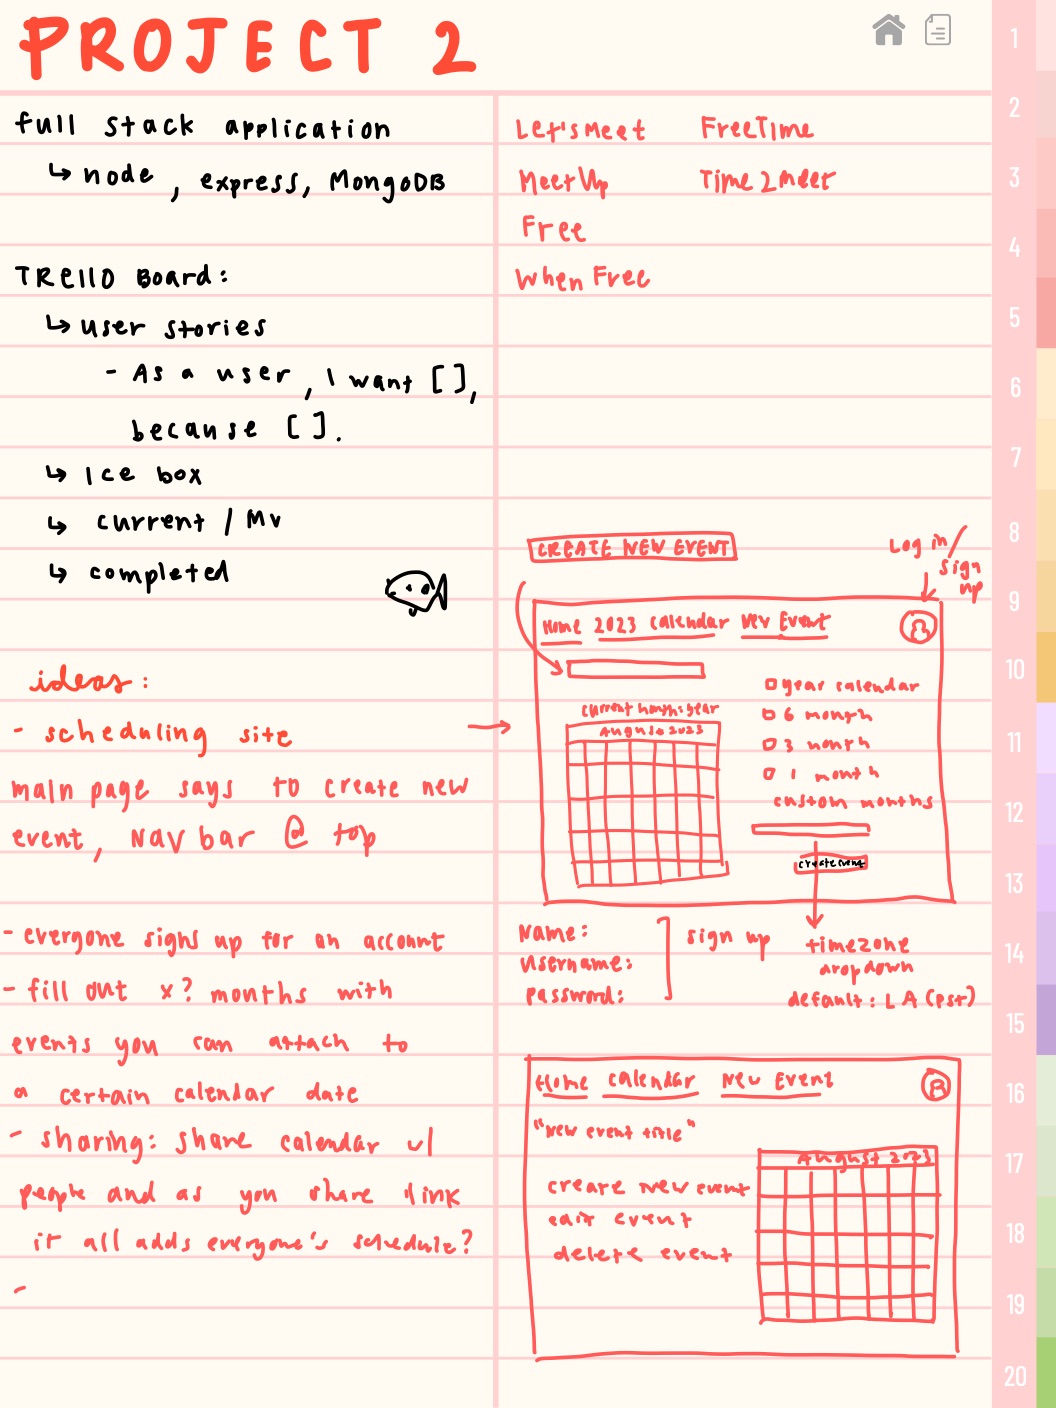 PROJECT 2
full stack application
↳ node, express, MongoDB
TRELLO Board:
↳ user stories
- As a user, I want [],
because [].
↳ Ice box
↳ current / MV
↳ completed
ideas:
- scheduling site
main page says to create new
event, NAV bar @ top
- everyone signs up for an account
- fill out x? months with
events you can attach to
a certain calendar date
- sharing: share calendar w/
people and as you share link
it all adds everyone's schedule?
-
Let'sMeet FreeTime
MeetUp Time2Meet
Free
When Free
CREATE NEW EVENT
Log in/
sign
up
Home 2023 calendar New Event
year calendar
current month:year
6 month
August 2023
3 month
1 month
custom months
create event
Name:
sign up
username:
password:
timezone
dropdown
default: LA (PST)
Home calendar New Event
"New event title"
August 2023
create new event
edit event
delete event
1
2
3
4
5
6
7
8
9
10
11
12
13
14
15
16
17
18
19
20